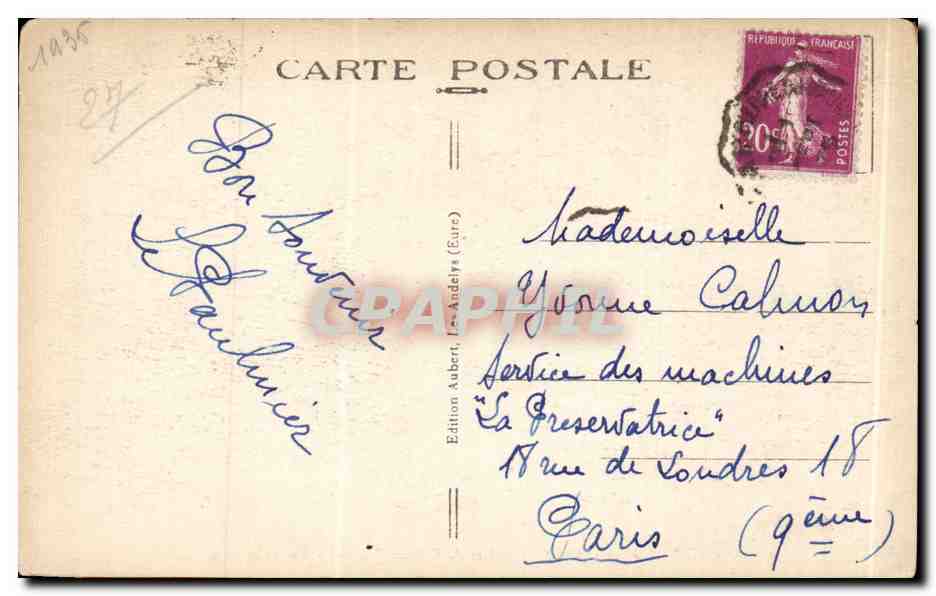 1936
27
CARTE POSTALE
REPUBLIQUE FRANÇAISE
20c
POSTES
Bon Souvenir
Le Paulmier
Edition Aubert, Les Andelys (Eure)
CPAPHIL
Mademoiselle
Yvonne Calmon
Service des machines
"La Préservatrice"
18 rue de Londres 18
Paris (9ème)